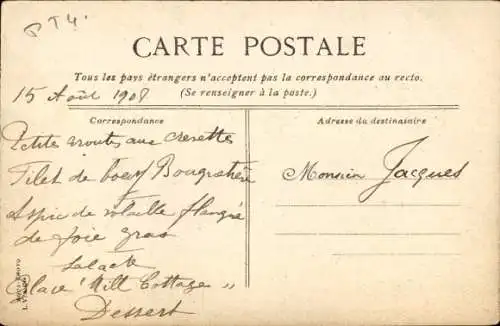 PT4
CARTE POSTALE
Tous les pays étrangers n'acceptent pas la correspondance au recto.
(Se renseigner à la poste.)
15 Août 1908
Correspondance
Adresse du destinataire
Petites aux crevettes
Filet de boeuf
Monsieur Jacques
Aspic de volaille
de foie gras
Salade
Glace "Hill Cottage"
Dessert